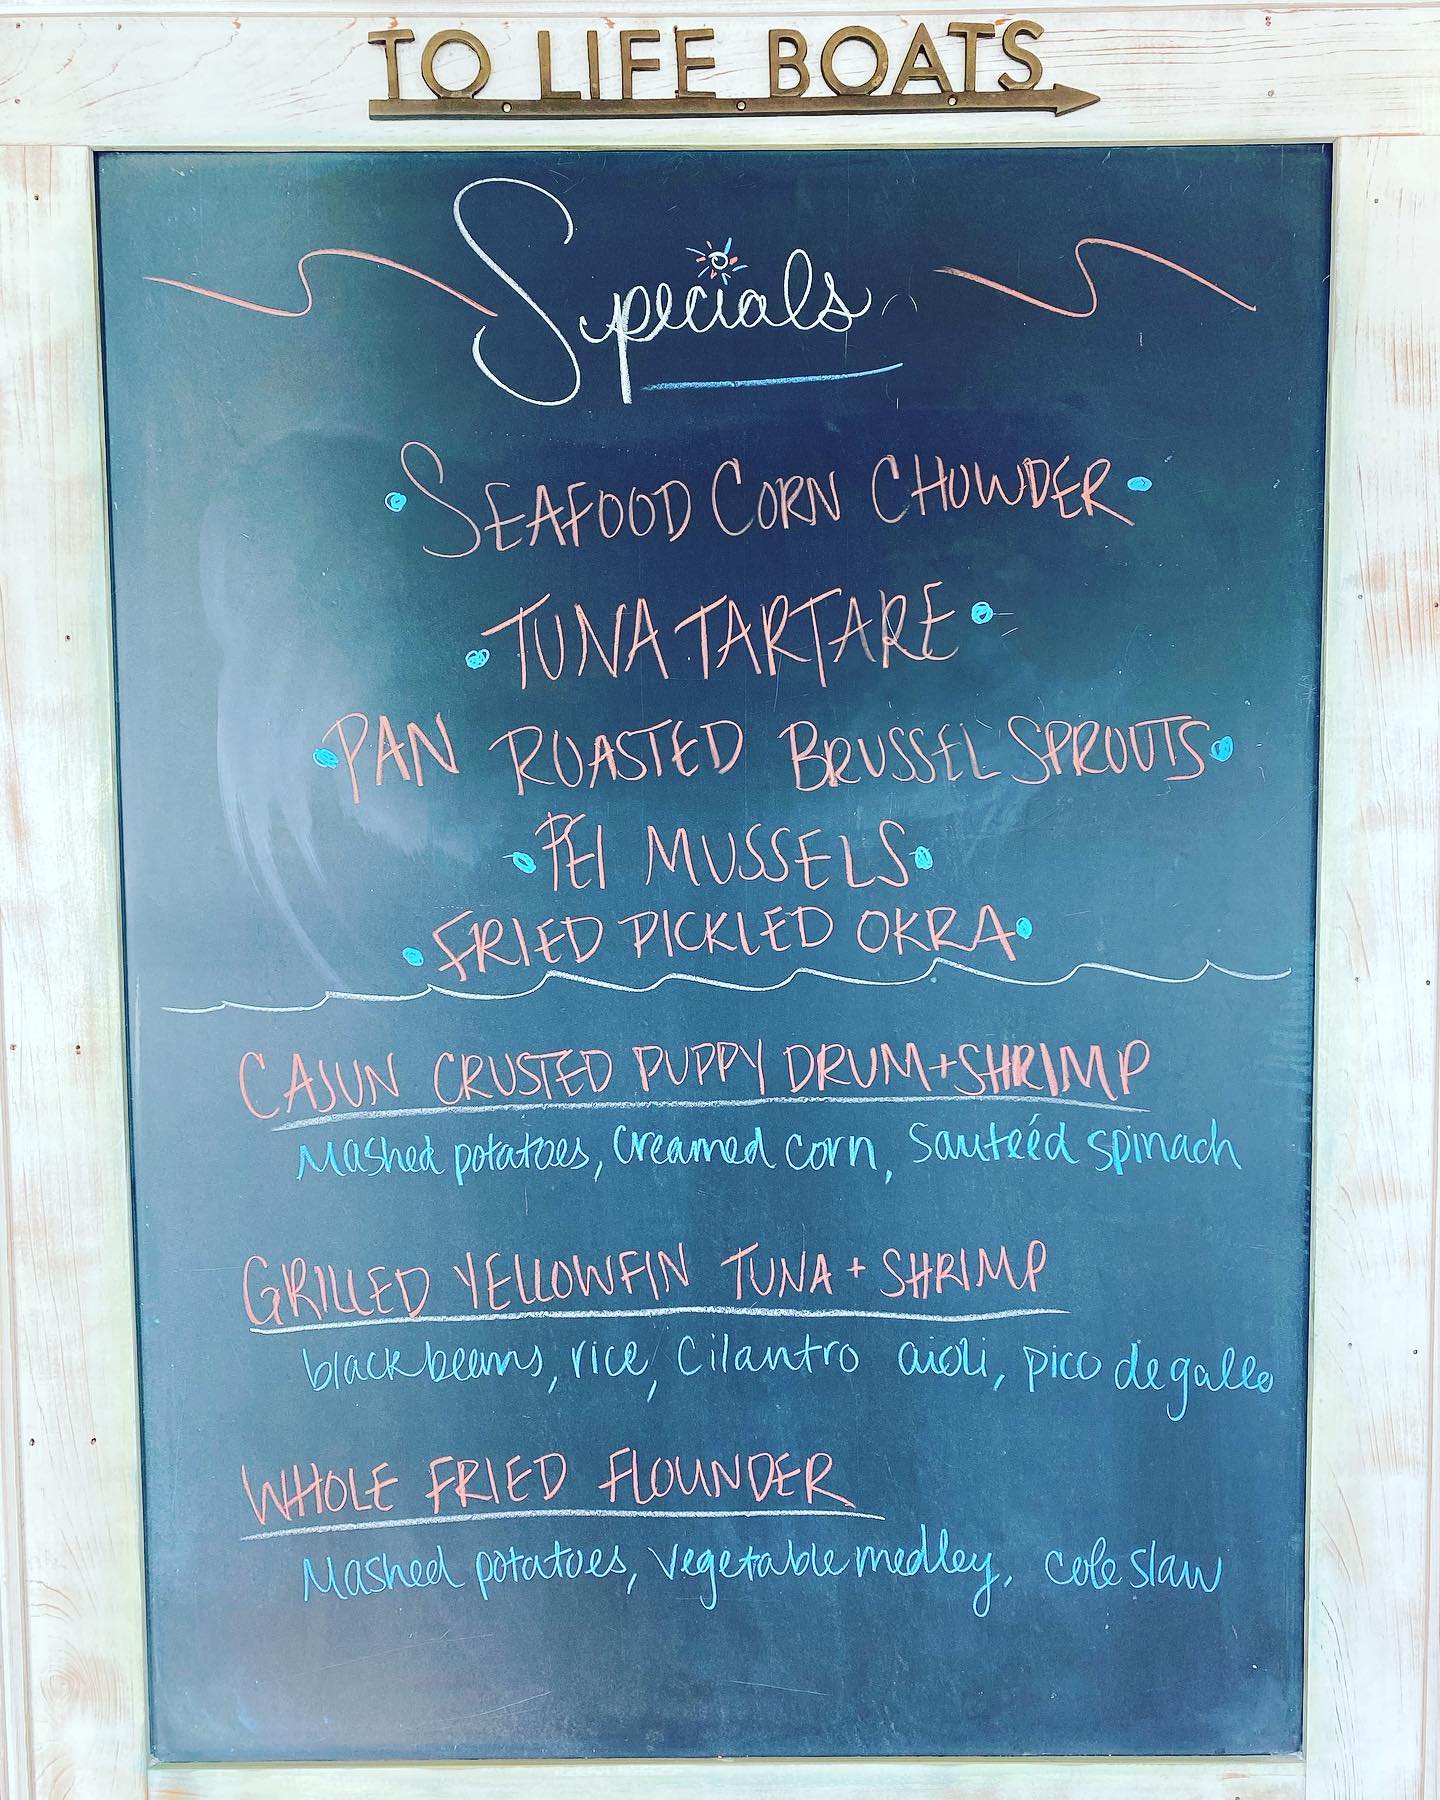 TO LIFE BOATS
Specials
SEAFOOD CORN CHOWDER
TUNA TARTARE
PAN ROASTED BRUSSEL SPROUTS
PEI MUSSELS
FRIED PICKLED OKRA
CAJUN CRUSTED PUPPY DRUM + SHRIMP
Mashed potatoes, Creamed corn, Sauteéd spinach
GRILLED YELLOWFIN TUNA + SHRIMP
black beans, rice, Cilantro aioli, pico de gallo
WHOLE FRIED FLOUNDER
Mashed potatoes, vegetable medley, cole slaw